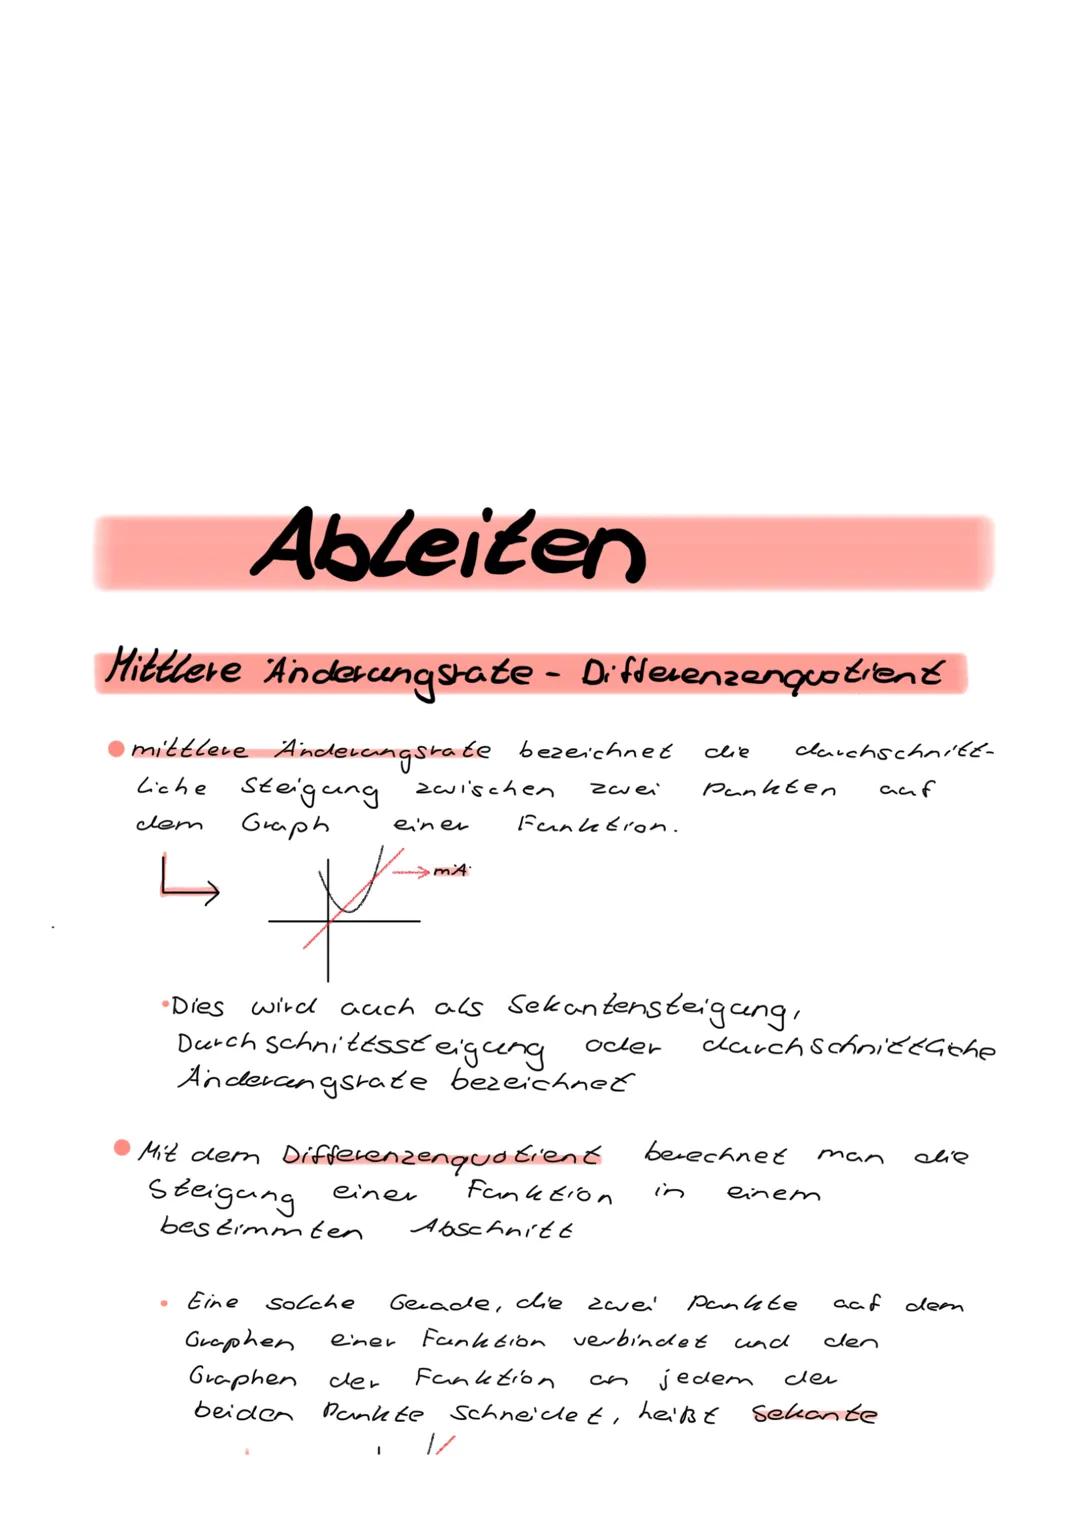 Ableiten
Mittlere Änderungsrate - Differenzenquotient
mittlere Änderungsrate bezeichnet die durchschnitt-
liche Steigung zwischen zwei Punkten auf
dem Graph einer Funktion.
mÄ
•Dies wird auch als Sekantensteigung,
Durchschnittssteigung oder durchschnittliche
Änderungsrate bezeichnet
Mit dem Differenzenquotient berechnet man die
Steigung einer Funktion in einem
bestimmten Abschnitt
• Eine solche Gerade, die zwei Punkte auf dem
Graphen einer Funktion verbindet und den
Graphen der Funktion an jedem der
beiden Punkte schneidet, heißt Sekante